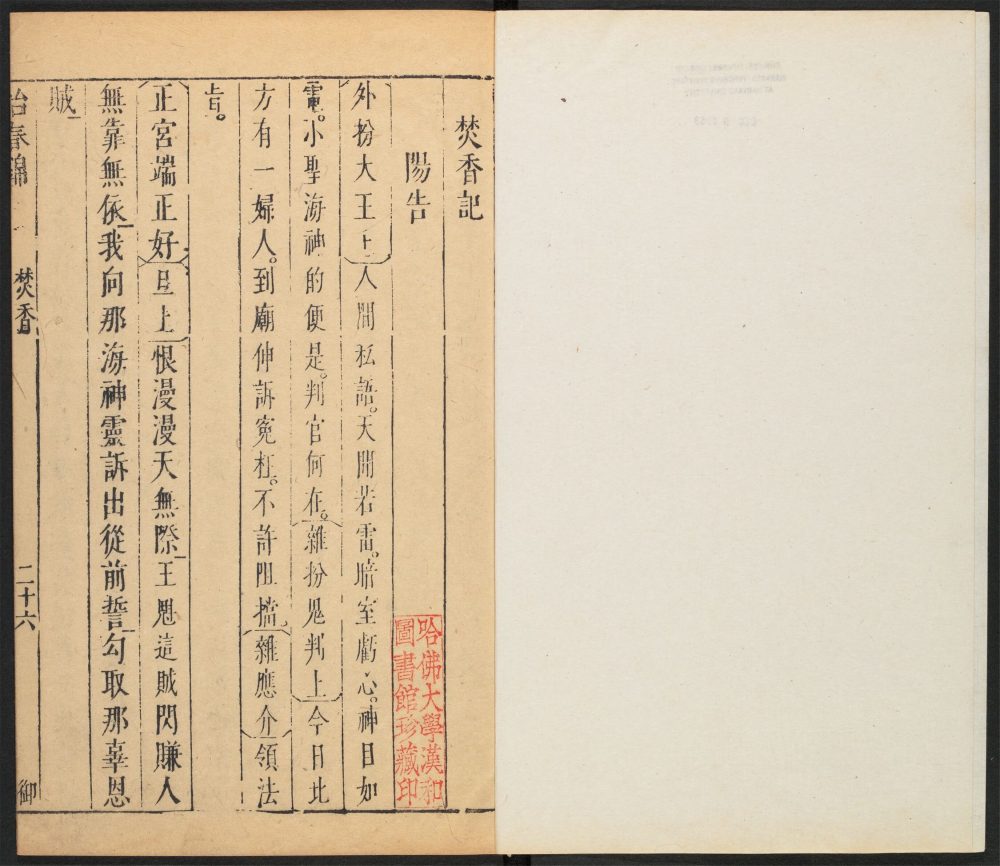 焚香記
陽告
外扮大王上人間私語。天聞若雷。暗室虧心。神目如
電。小聖海神的便是。判官何在。雜扮鬼判上今日北
方有一婦人。到廟伸訴寃枉。不許阻擋。雜應介領法
旨。
正宮端正好旦上恨漫漫天無際王魁這賊閃賺人
無靠無依我向那海神靈訴出從前誓勾取那辜恩
賊
怡春錦
焚香
二十六
御
哈佛大學漢和
圖書館珍藏印